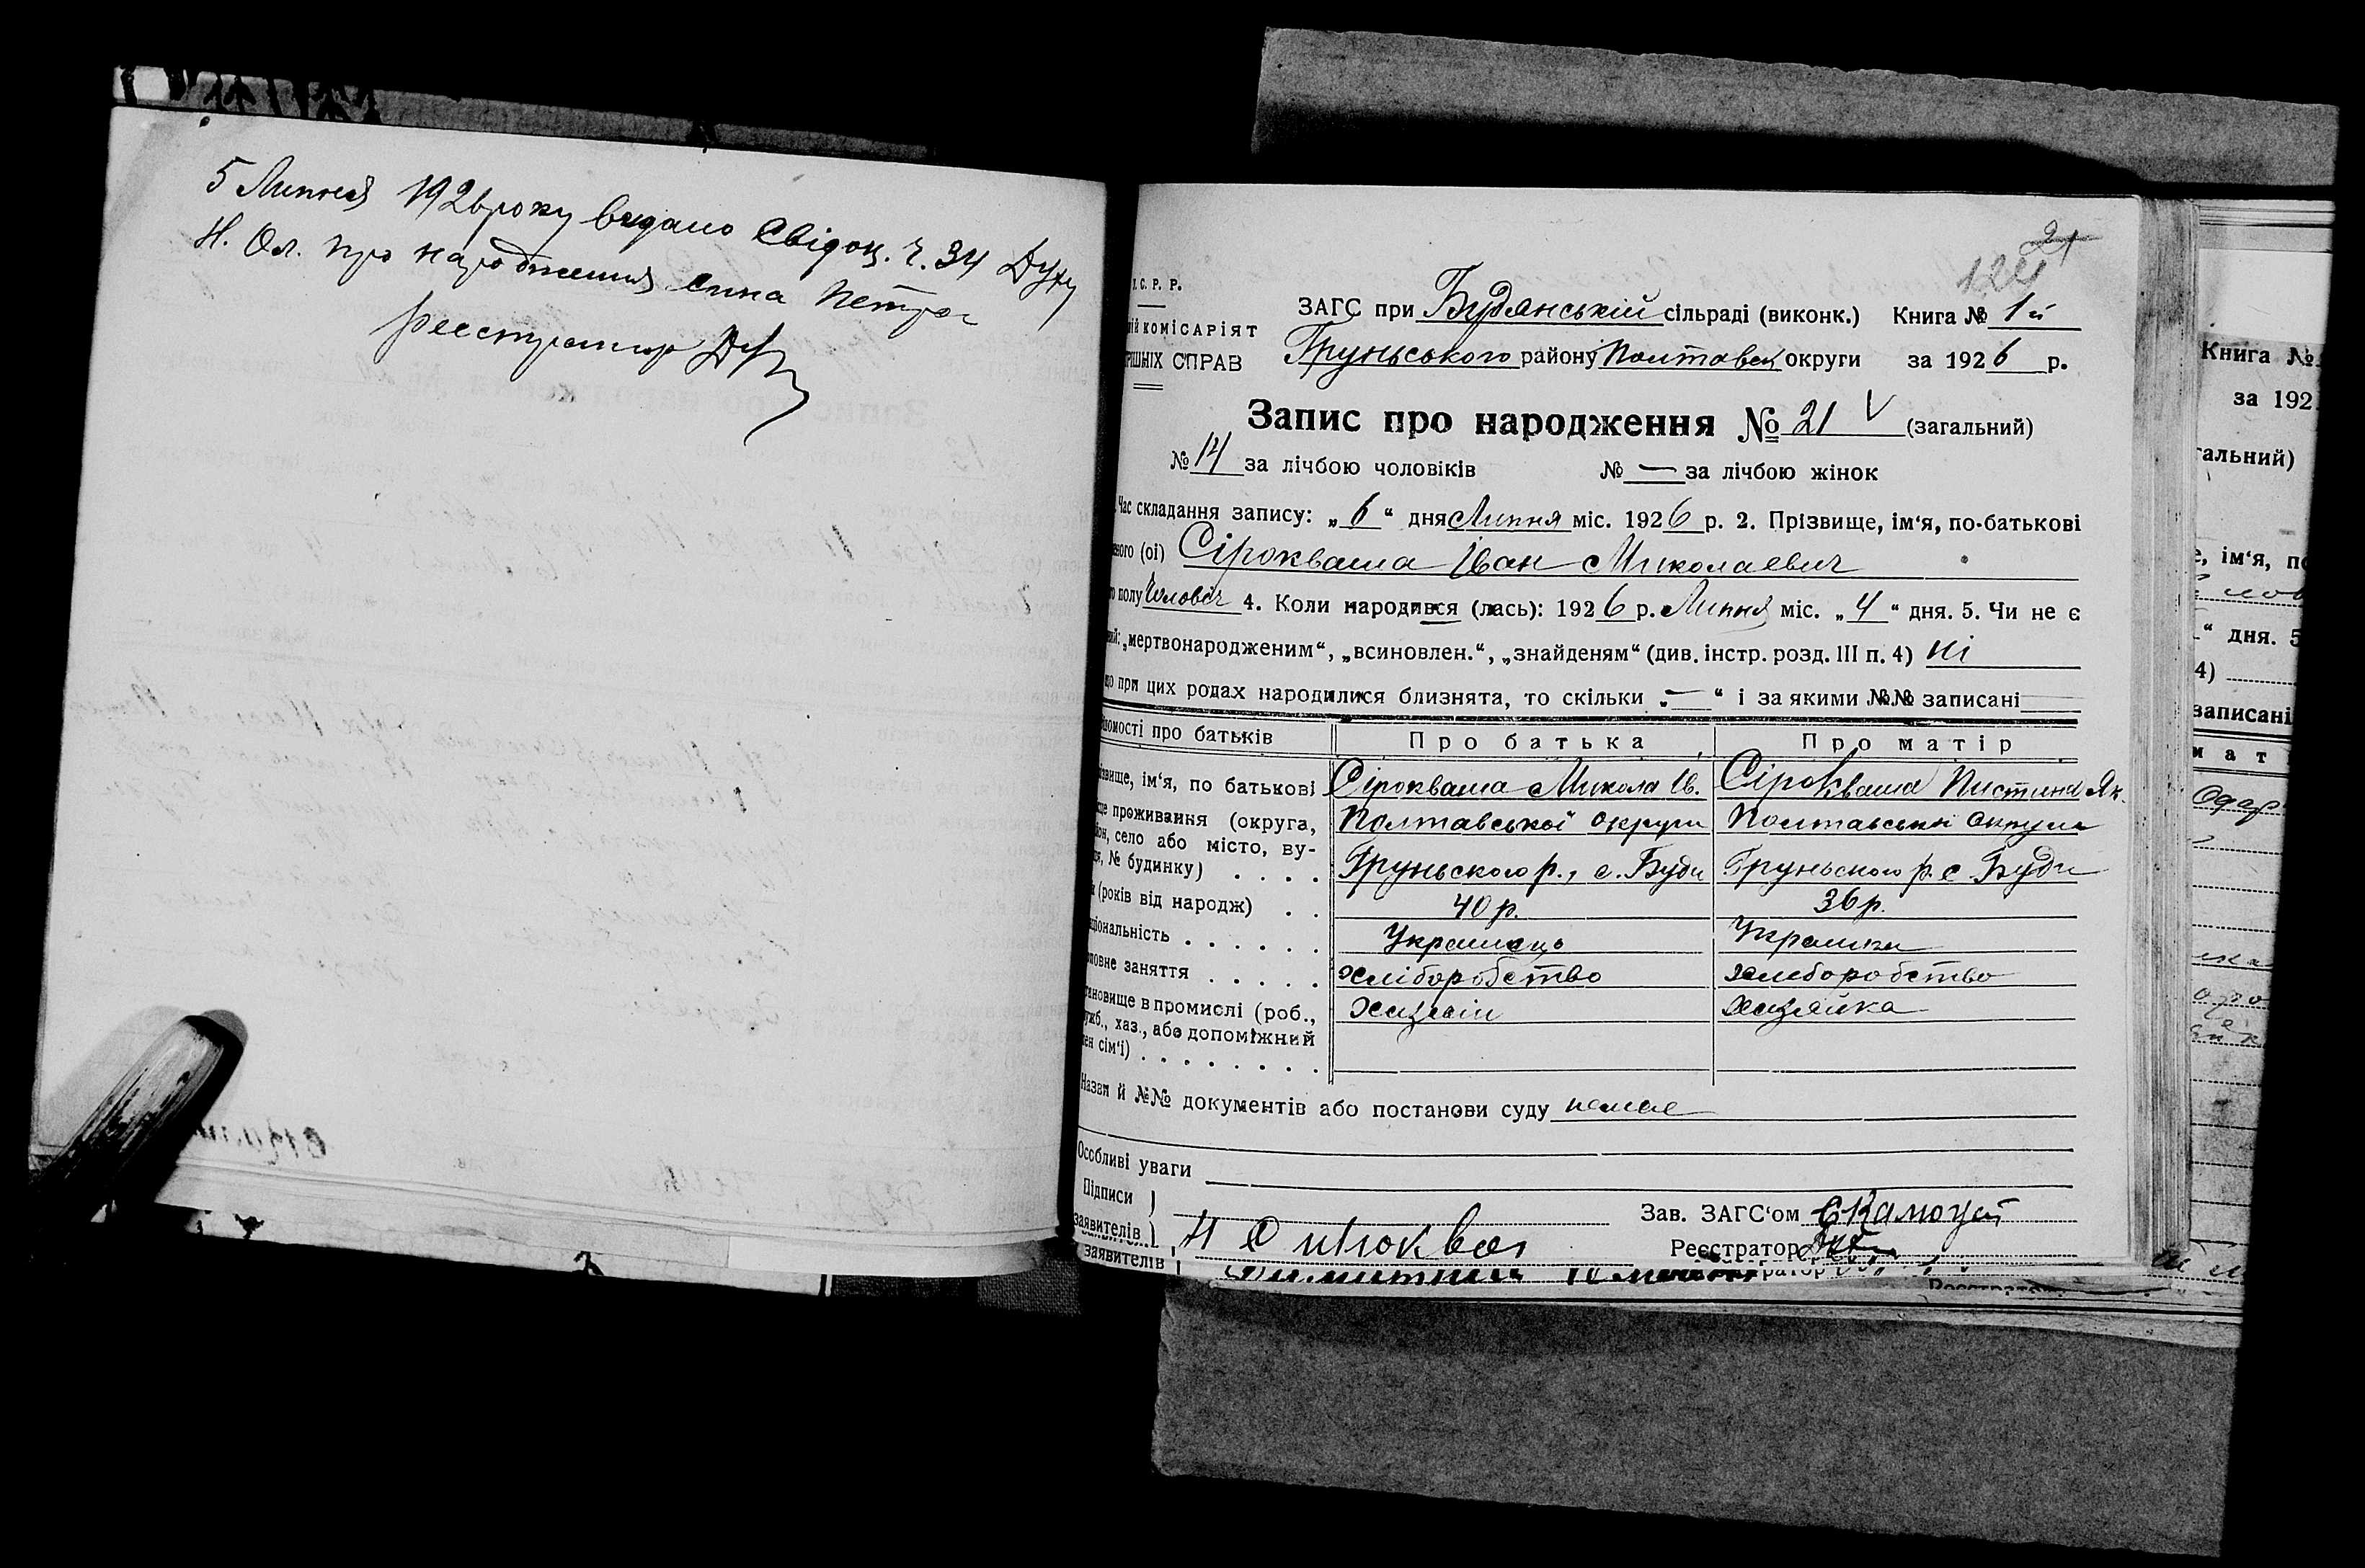 5 Липня 1926 року видано Свідоц. ч. 34 Дуду
Н. Ол. про народження сина Петра
Реєстратор
21
С. Р. Р.
ЗАГС при Будянській сільраді (виконк.) Книга № 1й
КОМІСАРІЯТ
СПРАВ
Груньського району Полтавськ округи за 1926 р.
Запис про народження № 21 V (загальний)
№ 14 за лічбою чоловіків № — за лічбою жінок
Час складання запису: „6“ дня Липня міс. 1926 р. 2. Прізвище, ім‘я, по-батькові
ного (ої) Сірокваша Іван Миколаевич
полу Чоловіч 4. Коли народився (лась): 1926 р. Липня міс. „4“ дня. 5. Чи не є
„мертвонародженим“, „всиновлен.“, „знайденям“ (див. інстр. розд. III п. 4) ні
що при цих родах народилися близнята, то скільки „—“ і за якими №№ записані
домості про батьків Про батька Про матір
звище, ім‘я, по батькові Сірокваша Микола Ів. Сірокваша Пистина Як.
це проживання (округа, Полтавської округи Полтавськи округи
он, село або місто, ву-
№ будинку) . . . . Груньского р., с. Буди Груньского р. с Буди
(років від народж) . . 40 р. 36 р.
ціональність . . . . . . Украинець Украинка
ловне заняття . . . . . хліборобство хлиборобство
тановище в промислі (роб., Хазяін хазяйка
ужб., хаз., або допоміжний
ен сім‘ї) . . . . . . . . .
Назви й №№ документів або постанови суду немае
Особливі уваги
Підписи
заявителів
Зав. ЗАГС‘ом
Реєстратор
заявителів
Книга №
за 192
гальний)
ім‘я, по
“ дня. 5
4)
записані
мат
Одар